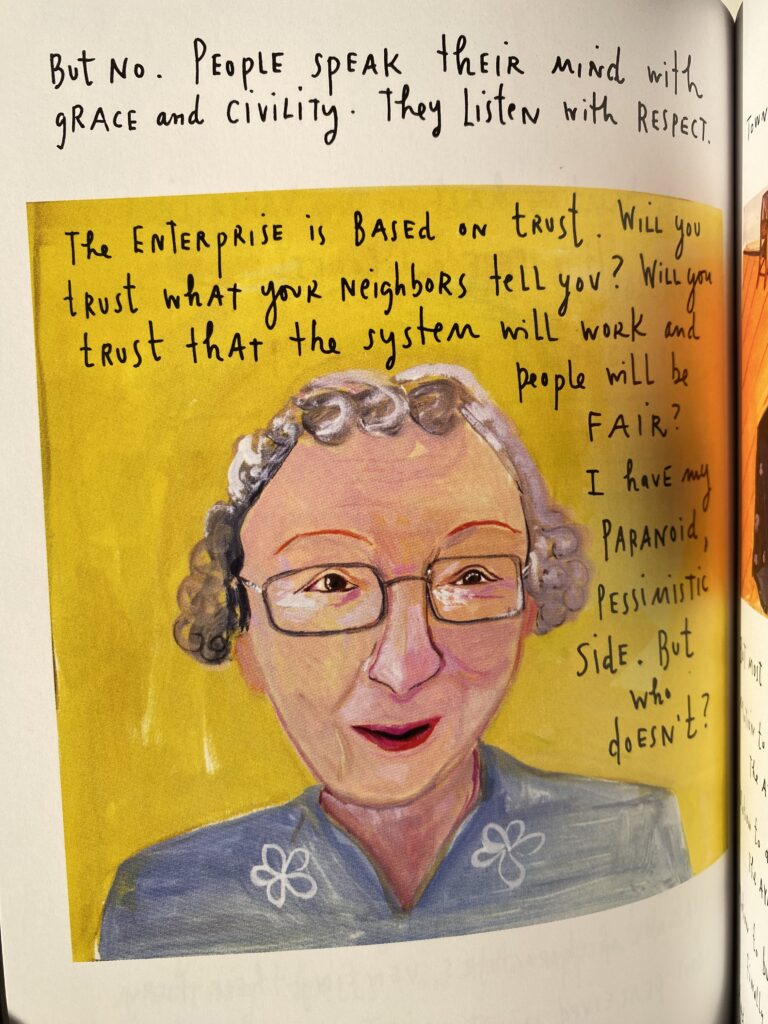 But NO. PEOPLE SPEAK thEIR MIND with
gRACE and CIVILITY. They LISTEN with RESPECT.
The ENTERPRISE is BASEd ON tRUST. WILL you
tRUST whAT youR NEIghboRS tell you? WILL you
tRUST thAT the system will woRK and
people will be
FAIR?
I havE my
PARANOId,
PESSIMISTIC
SIdE. BUt
who
doESN't?
TOWN